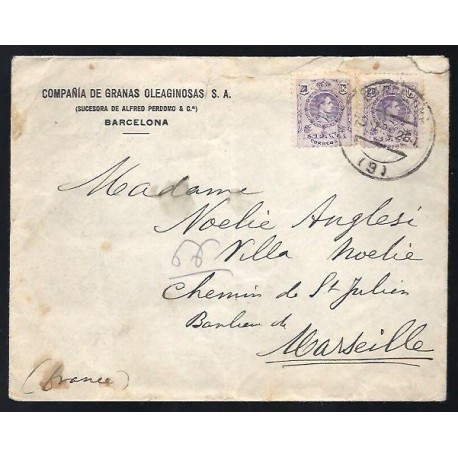 COMPAÑÍA DE GRANAS OLEAGINOSAS S. A.
(SUCESORA DE ALFRED PERDOMO & C.ª)
BARCELONA
CORREOS
(9)
Madame
Noelie Anglesi
Villa Noelie
Chemin de St Julien
Banlieu de
Marseille
(France)